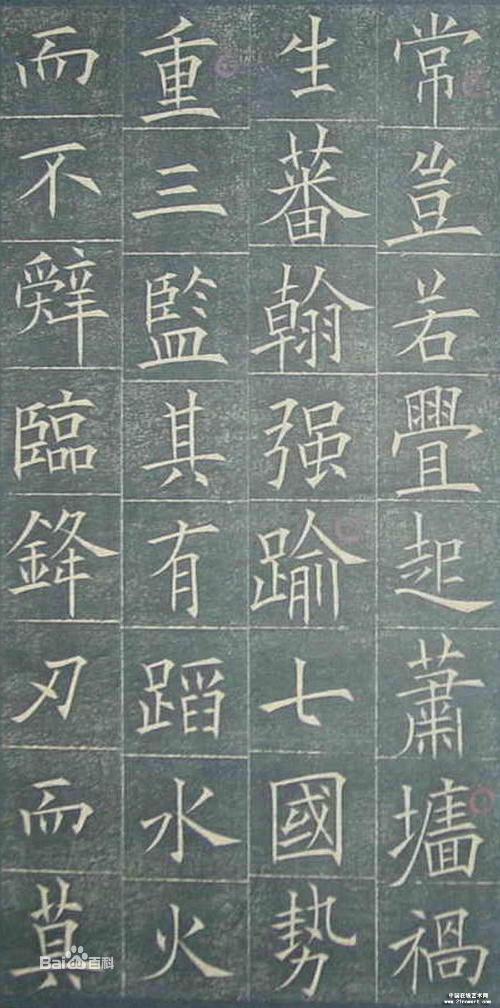 常豈若疊起蕭墻禍
生蕃翰强踰七國勢
重三監其有蹈水火
而不辭臨鋒刃而莫
Baidu百科
中国在线艺术网